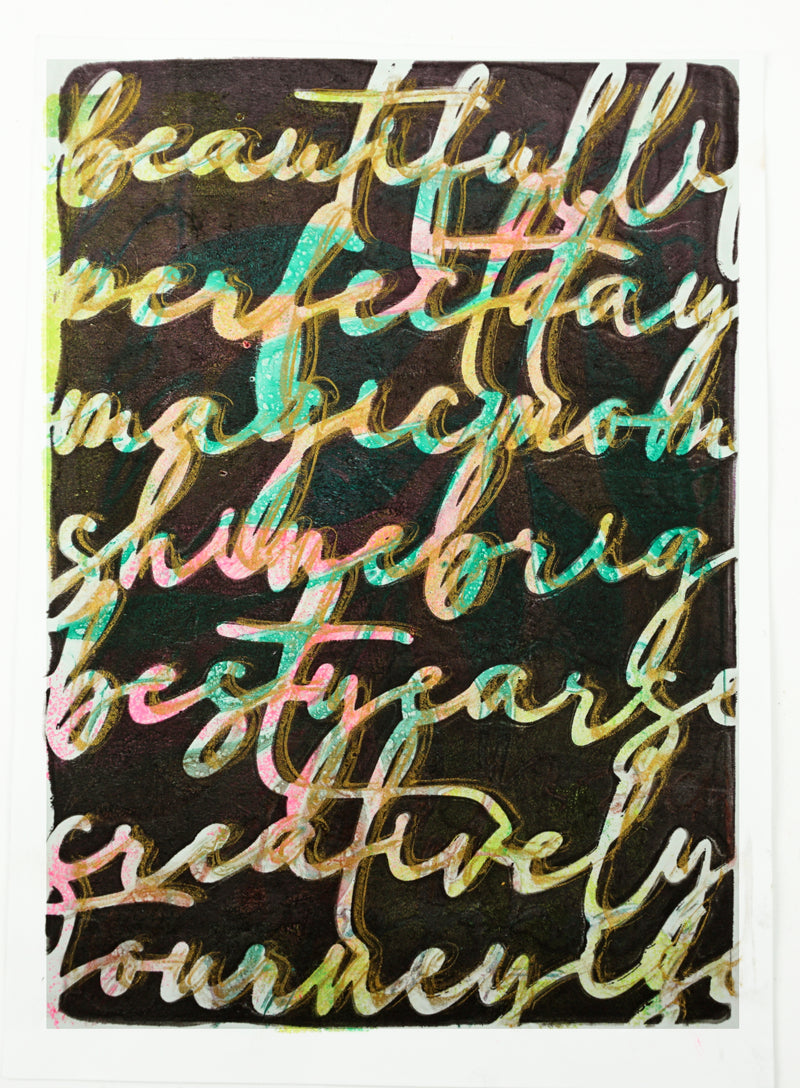 beautifully
perfectday
magicmom
shinebrig
bestyearso
creatively
journey